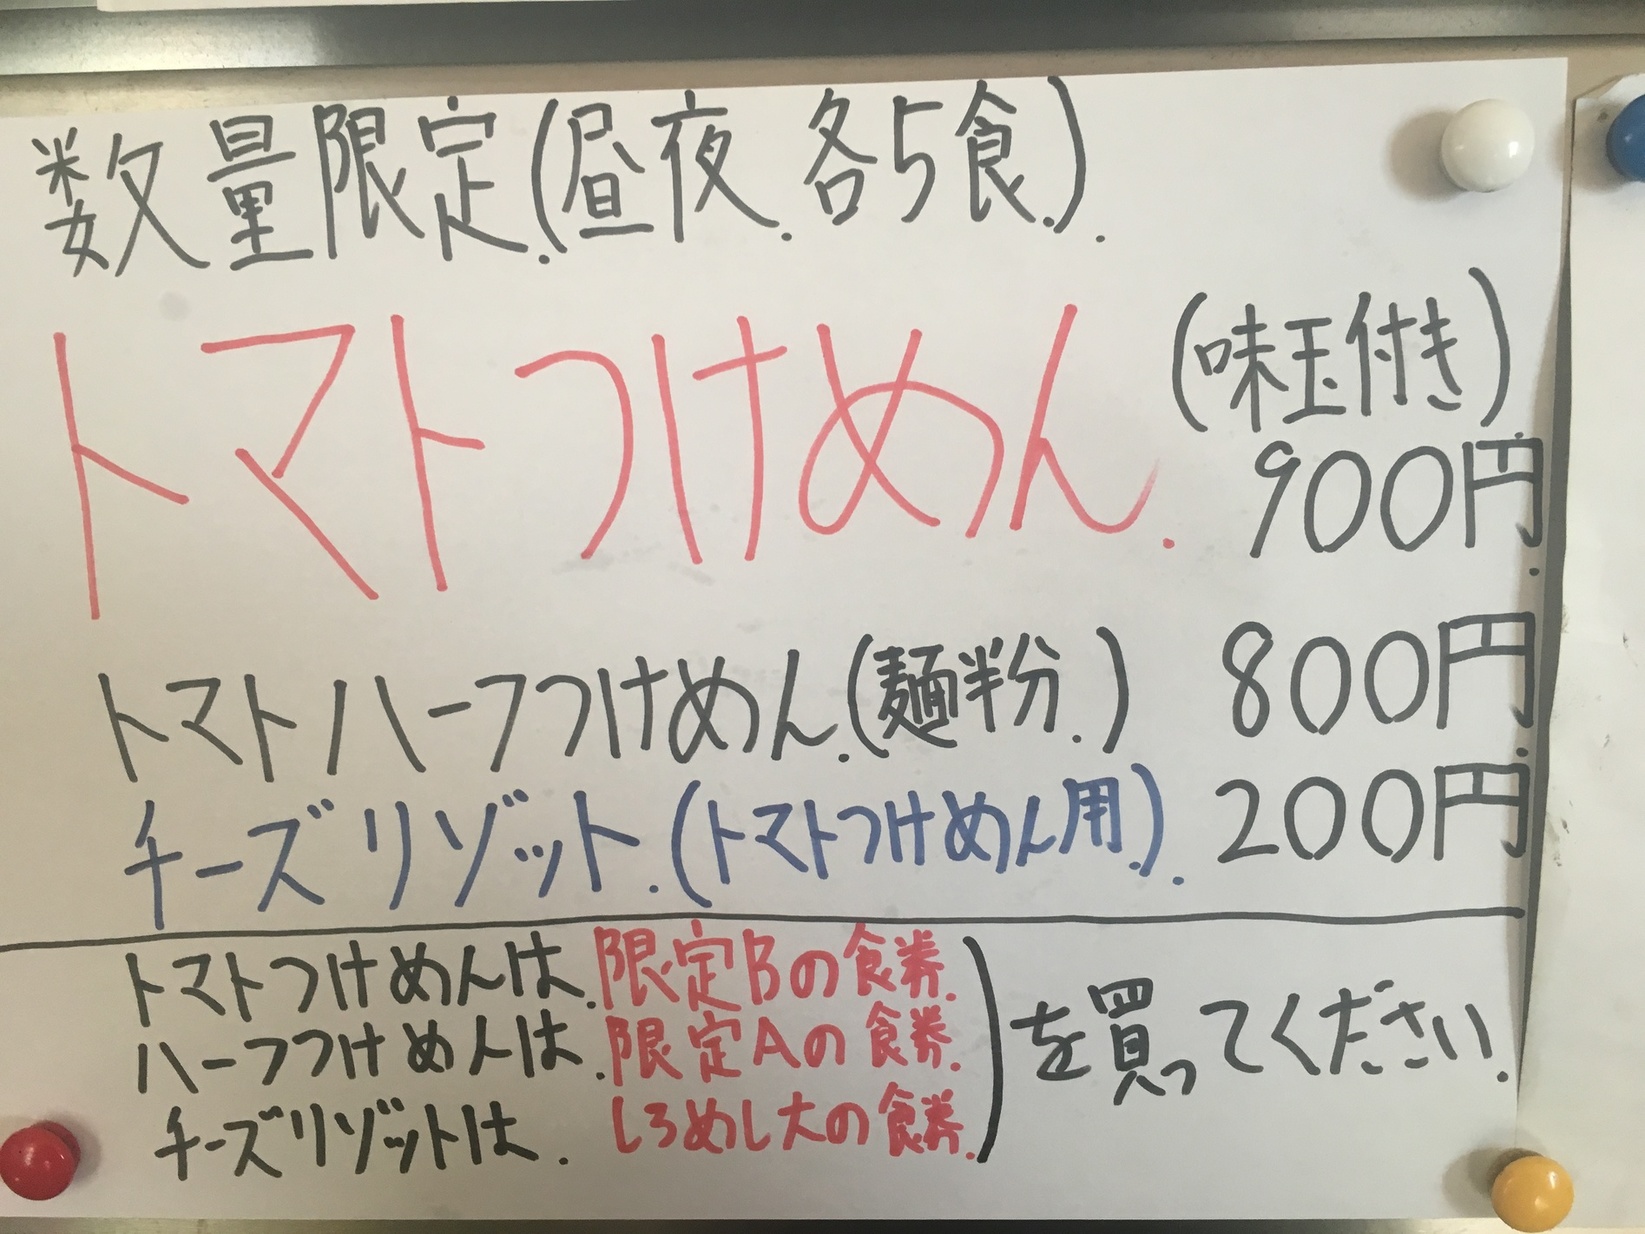 数量限定.(昼夜.各5食.).
トマトつけめん. (味玉付き) 900円.
トマトハーフつけめん.(麺半分.) 800円.
チーズリゾット.(トマトつけめん用.). 200円
トマトつけめんは.限定Bの食券.
ハーフつけめんは.限定Aの食券.
チーズリゾットは.しろめし大の食券.
を買ってください.